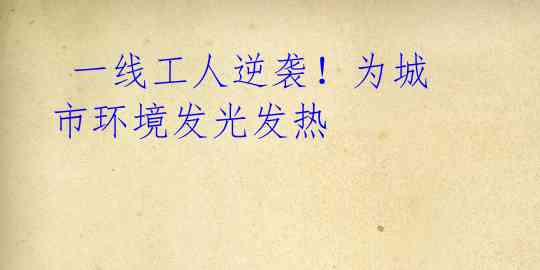 一线工人逆袭！为城
市环境发光发热